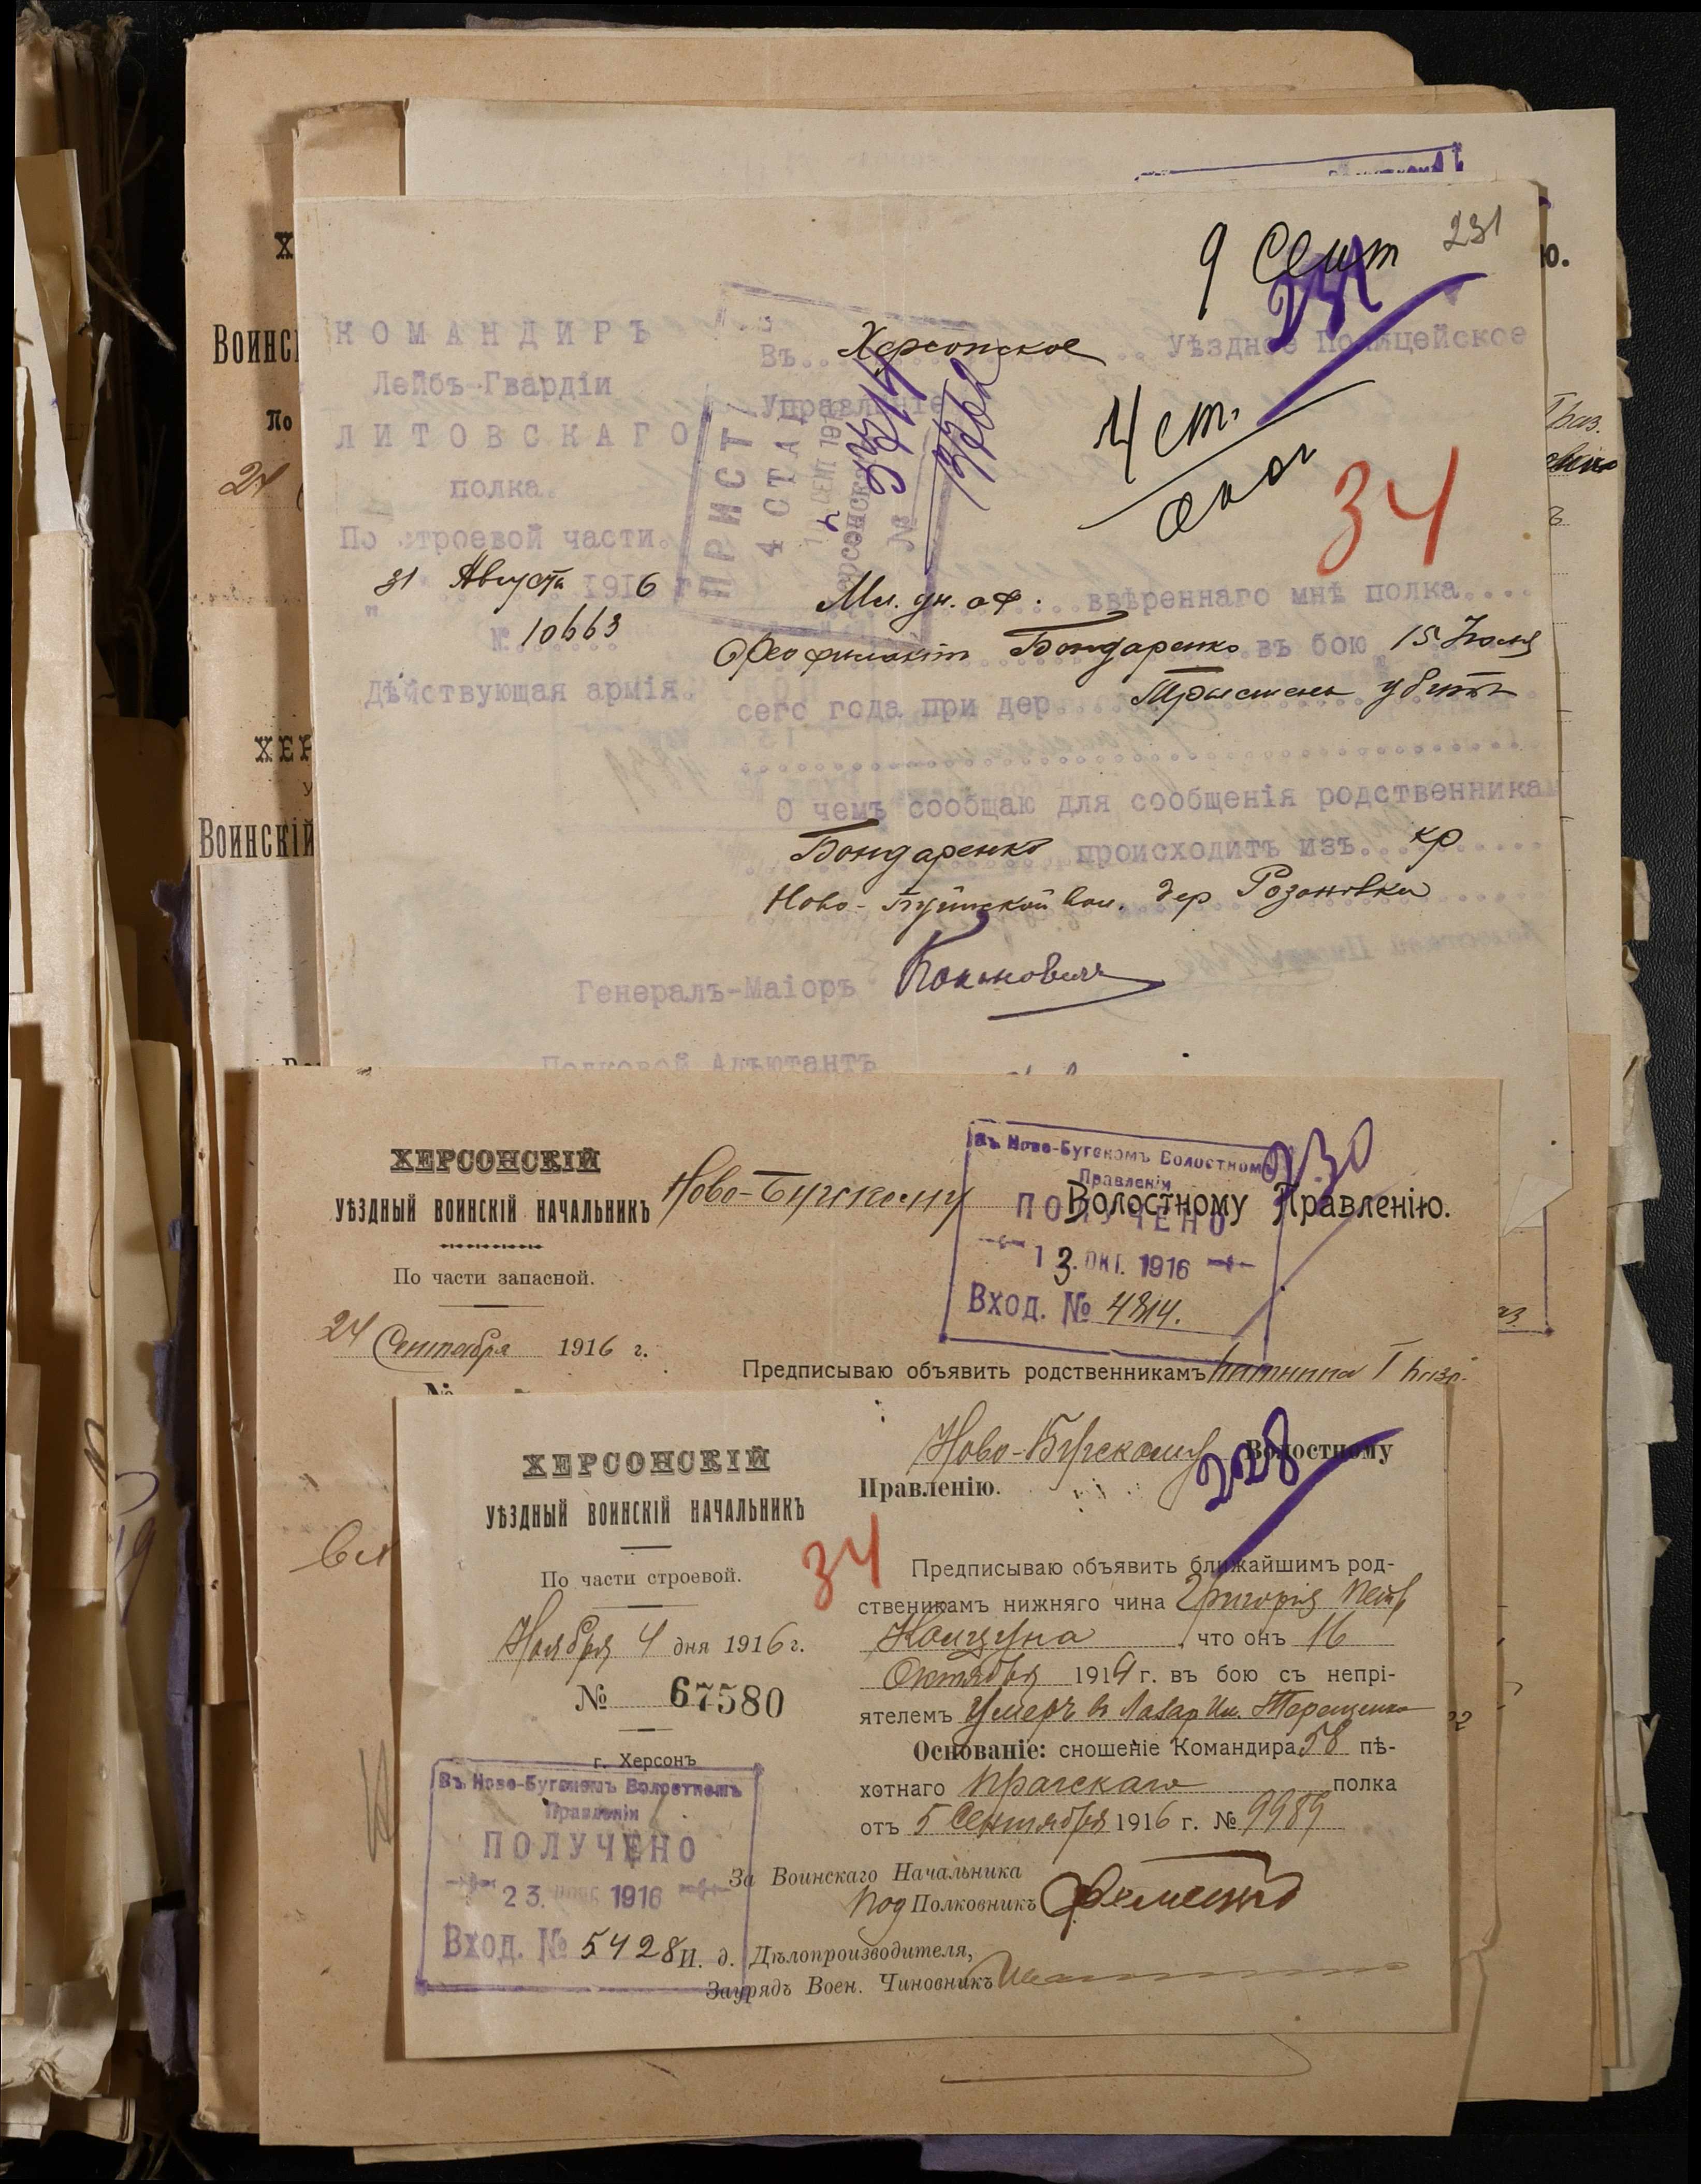 231
9 Сент
231
КОМАНДИРЪ
Лейбъ-Гвардіи
ЛИТОВСКАГО
полка.
По строевой части.
31 Августа 1916 г
№ 10663
Действующая армія.
Въ Херсонское Уѣздное Полицейское
Управленіе
ПРИСТ
4 СТАН
СЕНТ 191
Херсонск
№
4 ст.
34
Мл. ун. оф. ввѣреннаго мнѣ полка
Феофилактъ Бондаренко въ бою 15 Іюля
сего года при дер. Трыстень убитъ
О чемъ сообщаю для сообщенія родственникам
Бондаренко происходитъ изъ кр
Ново-Бугской вол. дер Розановка
Генералъ-Маіоръ
Полковой Адъютантъ
Воинс
По
24
ХЕР
Воинскій
ю.
ХЕРСОНСКІЙ
УѢЗДНЫЙ ВОИНСКІЙ НАЧАЛЬНИКЪ
По части запасной.
24 Сентября 1916 г.
№
Ново-Бугскому Волостному Правленію.
230
Въ Ново-Бугскомъ Волостномъ
Правленіи
ПОЛУЧЕНО
13. ОКТ. 1916
Вход. № 4814.
Предписываю объявить родственникамъ
ХЕРСОНСКІЙ
УѢЗДНЫЙ ВОИНСКІЙ НАЧАЛЬНИКЪ
По части строевой.
Ноября 4 дня 1916 г.
№ 67580
г. Херсонъ
34
Въ Ново-Бугскомъ Волостномъ
Правленіи
ПОЛУЧЕНО
23. НОЯБ 1916
Вход. № 5428
Ново-Бугскому Волостному
Правленію.
228
Предписываю объявить ближайшимъ род-
ственикамъ нижняго чина Григорія Петр
Колцуна, что онъ 16
Октября 1914 г. въ бою съ непрі-
ятелемъ Умеръ в Лазар Им. Терещенко
Основаніе: сношеніе Командира 58 пѣ-
хотнаго Прагскаго полка
отъ 5 Сентября 1916 г. № 9989
За Воинскаго Начальника
Под Полковникъ
И. д. Дѣлопроизводителя,
Заурядъ Воен. Чиновникъ